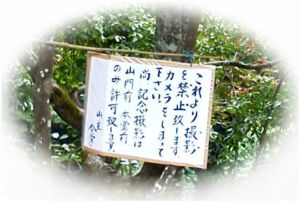 これより撮影
を禁止致します
カメラをしまって
下さい。
尚記念撮影は
山門前 本堂前
のみ許可致します。
山主